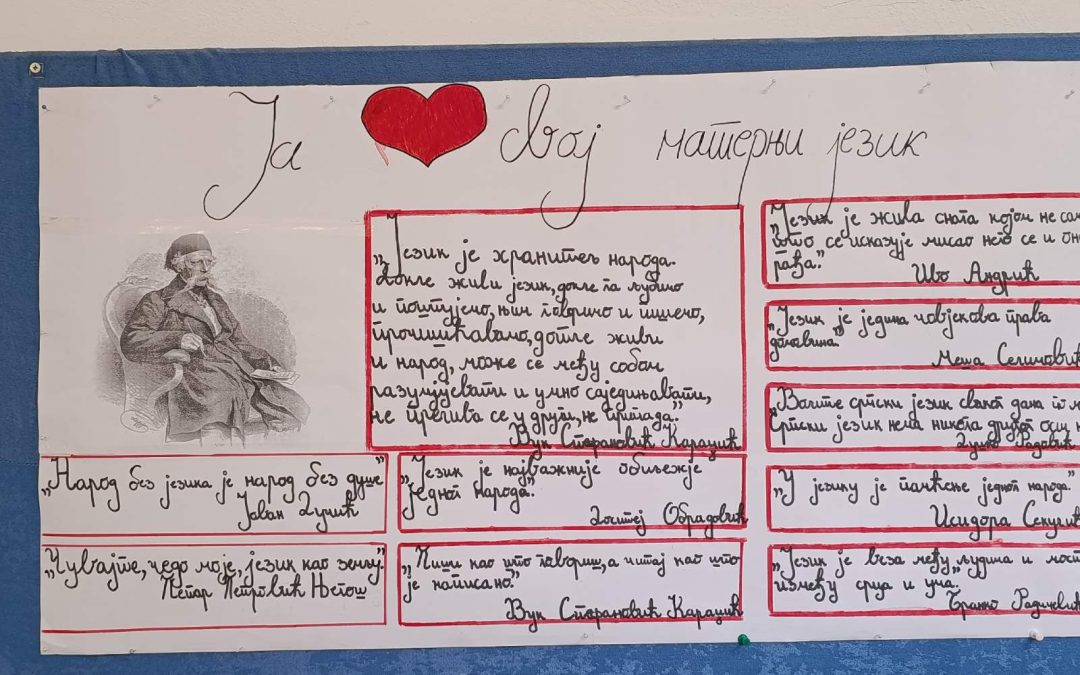 Ја свој матерњи језик
„Језик је хранитељ народа.
Докле живи језик, докле га љубимо
и поштујемо, њим говримо и пишемо,
прочишћавамо, дотле живи
и народ, може се међу собом
разумјевати и умно саједињавати,
не прелива се у други, не пропада.”
Вук Стефановић Караџић
„Народ без језика је народ без душе”
Јован Дучић
„Чувајте, чедо моје, језик као земљу.”
Петар Петровић Његош
„Језик је најважније обиљежје
једног народа.”
Доситеј Обрадовић
„Пиши као што говориш, а читај као што
је написано”
Вук Стефановић Караџић
„Језик је жива снага којом не сам
што се исказује мисао него се и он
рађа.”
Иво Андрић
„Језик је једина човјекова права
домовина.”
Меша Селимовић
„Волите српски језик сваког дана
Српски језик нема никога другог осим
Душко Радовић
„У језику је памћење једног народа.”
Исидора Секулић
„Језик је веза међу људима и мост
између срца и ума.”
Бранко Радичевић